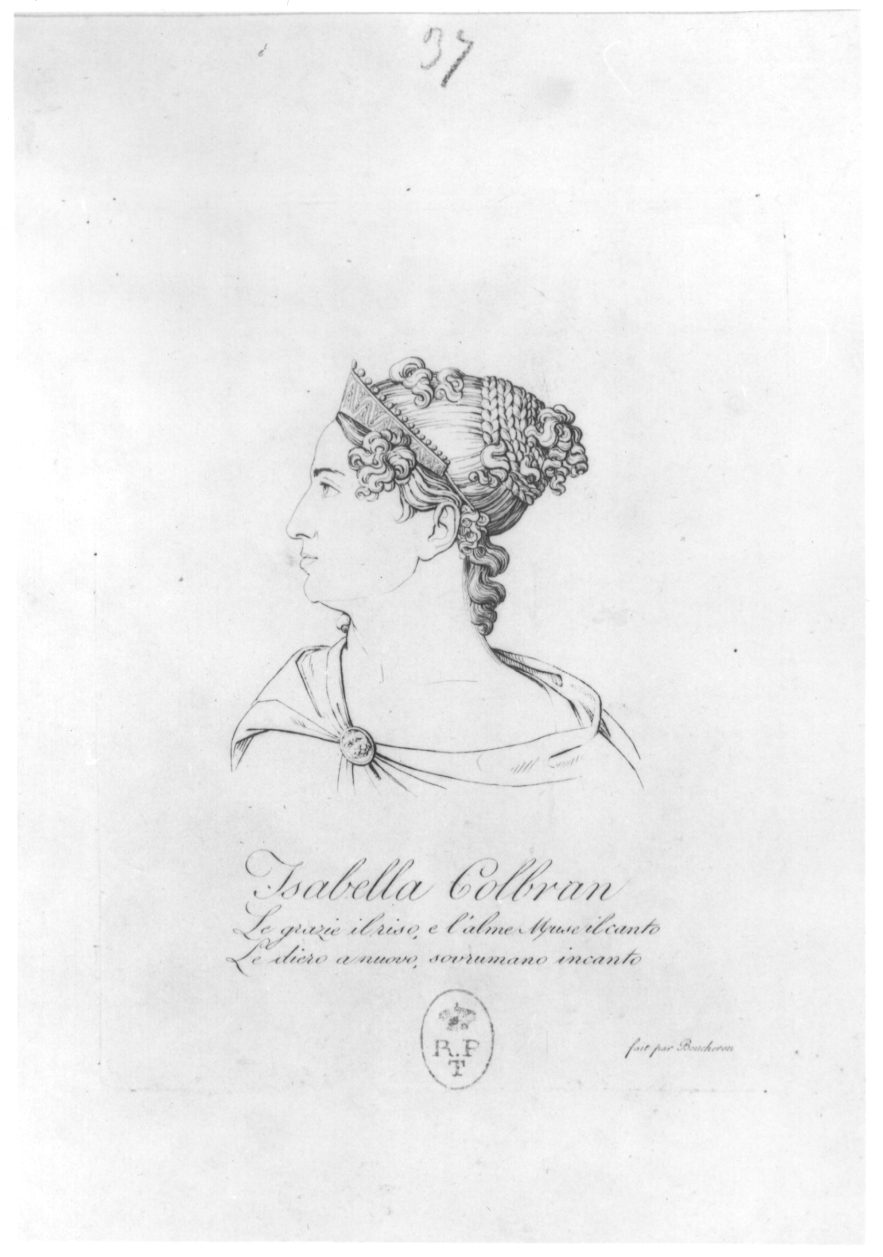 37
Isabella Colbran
Le grazie il riso, e l'alme Muse il canto
Le diero a nuovo, sovrumano incanto
R.P
T
fait par Boucheron